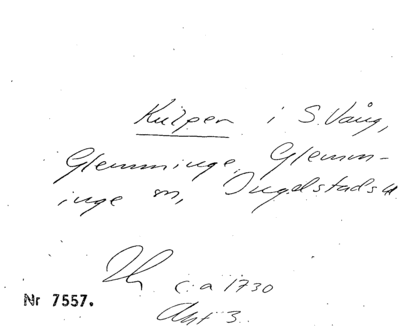 Kulpen i S. Vång,
Glemminge, Glemm-
inge sn, Ingelstads
ca 1730
Nr 7557.